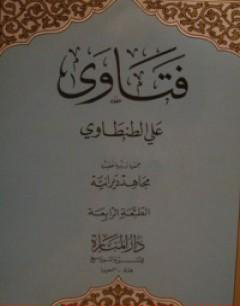 فتاوى
علي الطنطاوي
مجاهد ديرانية
الطبعة الرابعة
دار المنارة